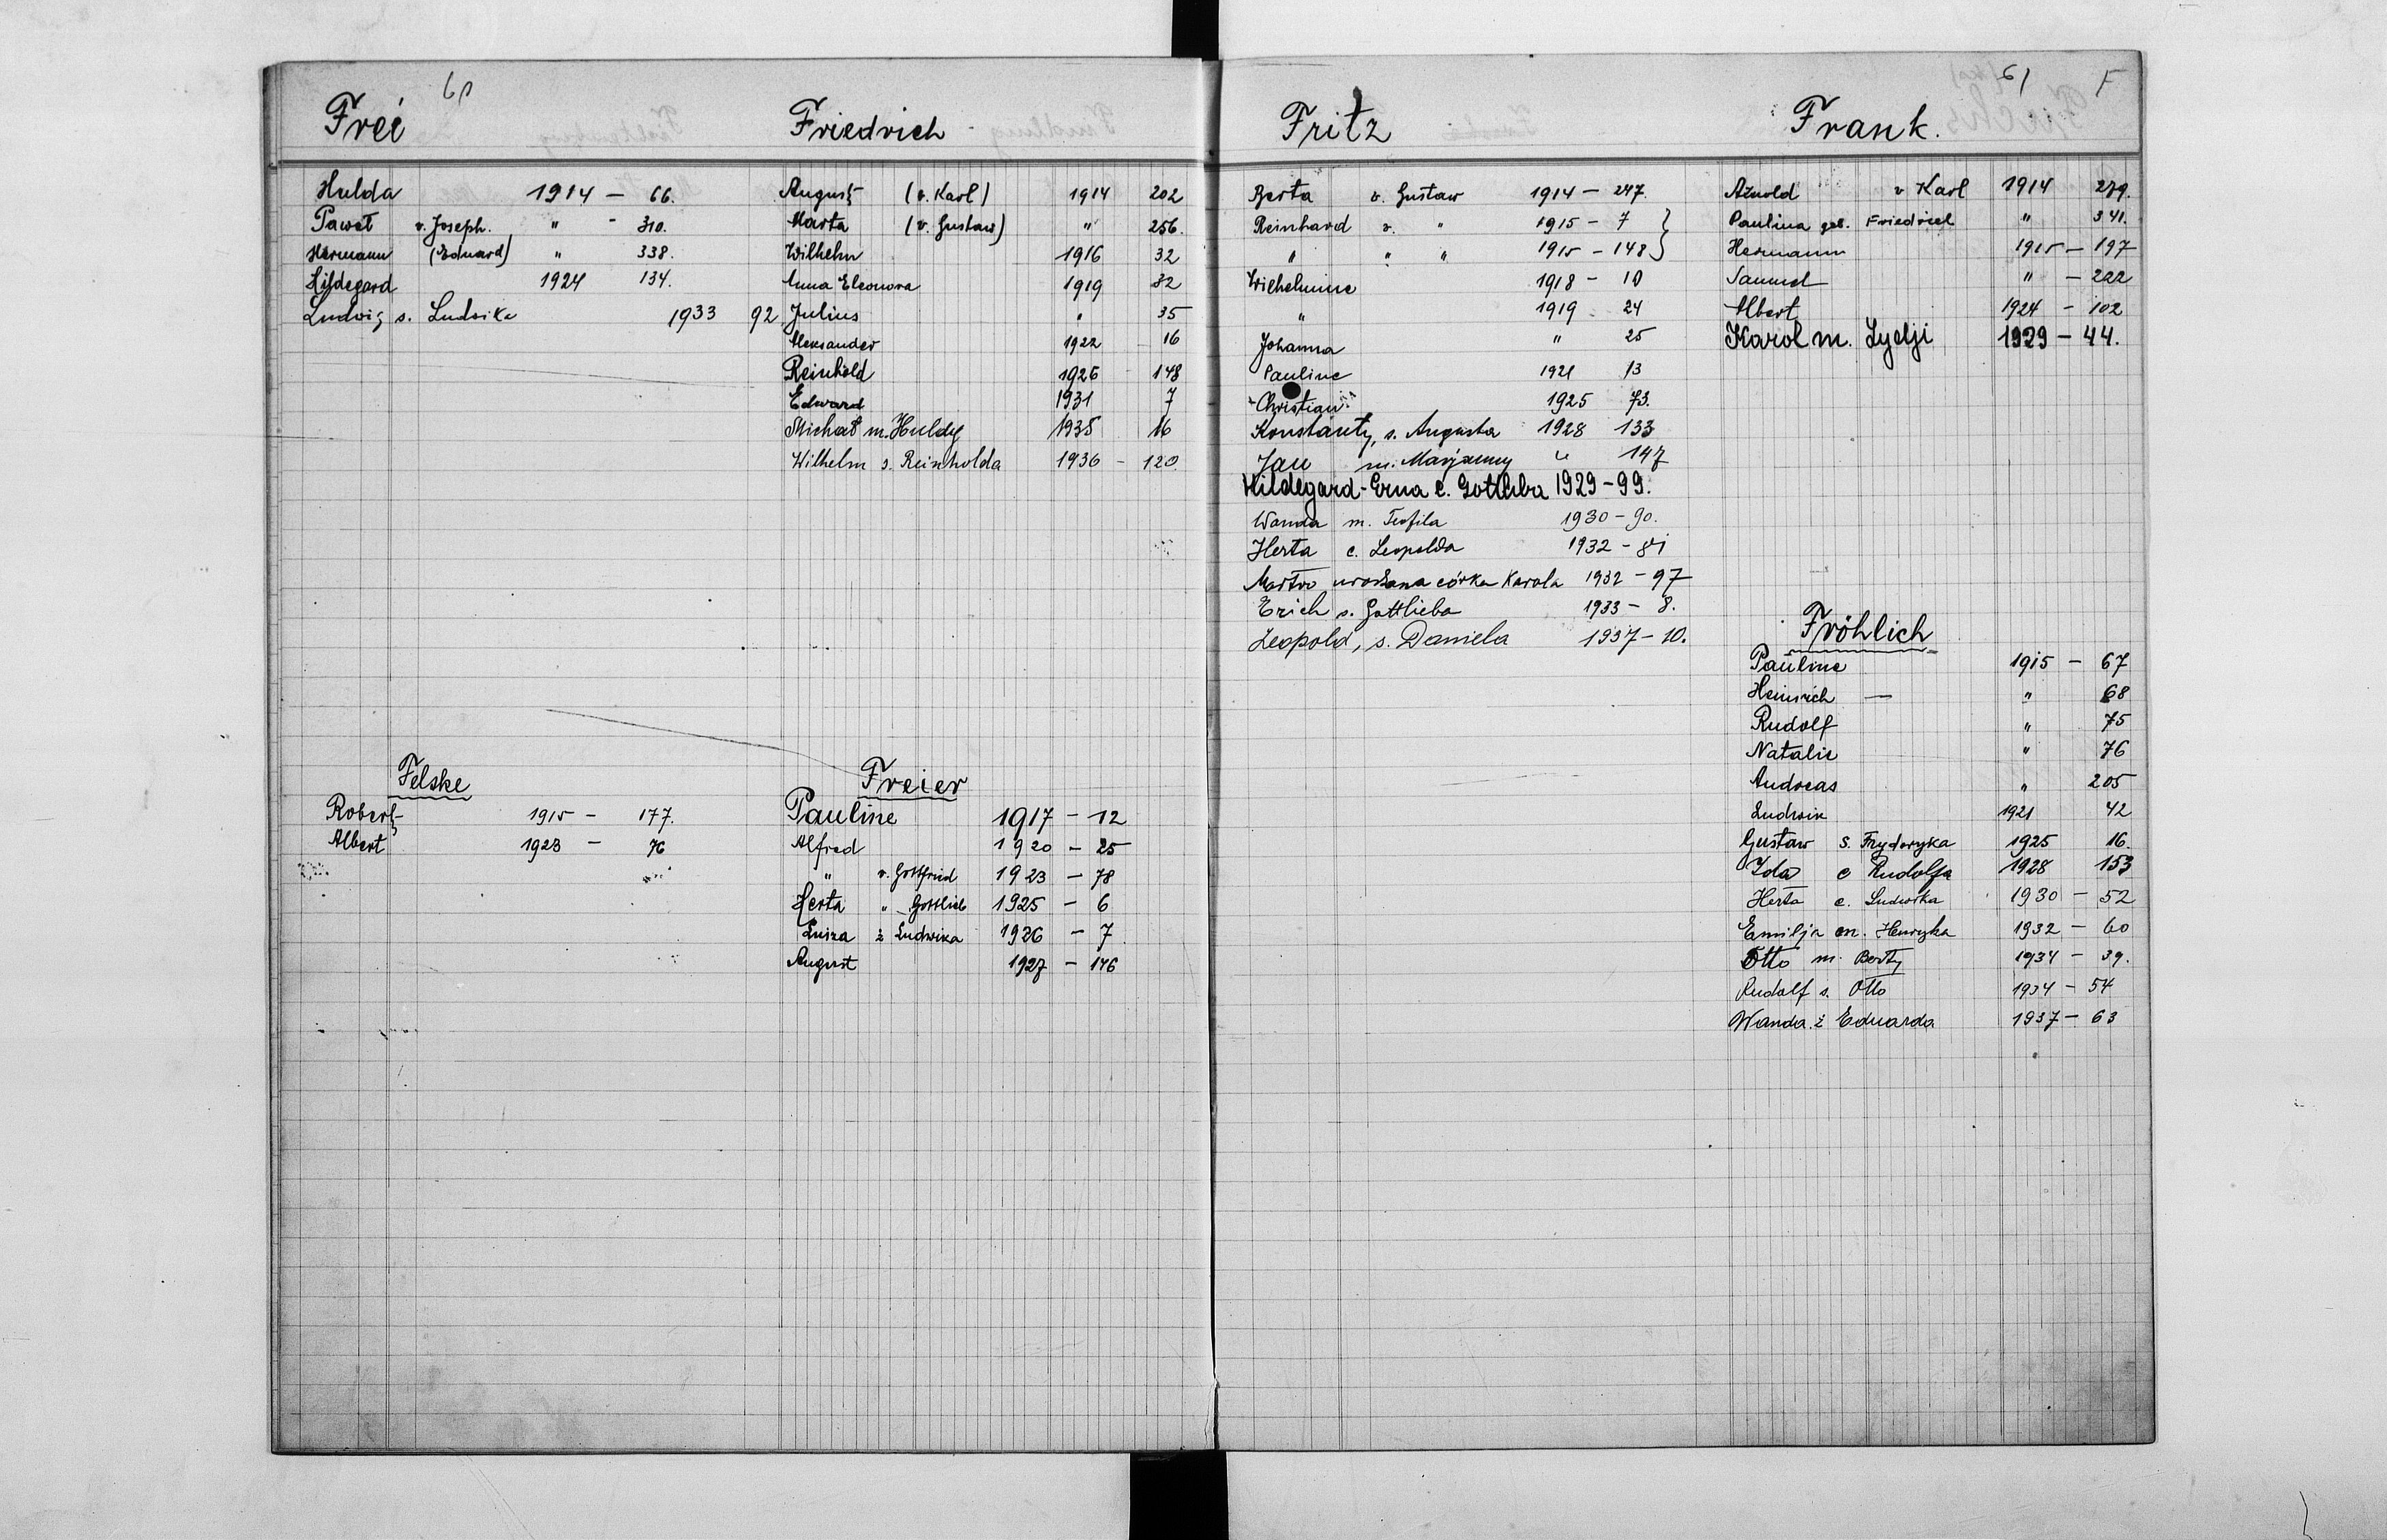 Frei
Hulda 1914 — 66.
Paweł v. Joseph. " - 310.
Hermann (Eduard) " 338.
Hildegard 1924 134.
Ludwig s. Ludwika 1933 92
Felske
Robert 1915 — 177.
Albert 1923 — 76
Friedrich
August (v. Karl) 1914 202
Marta (v. Gustaw) " 256.
Wilhelm 1916 32
Anna Eleonora 1919 32
Julius " 35
Aleksander 1922 16
Reinhold 1926 148
Edward 1931 7
Michał m. Huldy 1935 16
Wilhelm s. Reinholda 1936 - 120
Freier
Pauline 1917 - 12
Alfred 1920 - 25
" v. Gottfried 1923 - 78
Herta " Gottlieb 1925 - 6
Luiza ż Ludwika 1926 - 7
August 1927 - 146
61 F
Fritz
Berta v. Gustaw 1914 - 247.
Reinhard v. " 1915 - 7 }
" " " 1915 - 148 }
Wilhelmine 1918 - 10
" 1919 24
Johanna " 25
Pauline 1921 13
Christian 1925 73.
Konstanty, s. Augusta 1928 133
Jan m. Marjanny " 147
Hildegard-Erna c. Gottliba 1929 - 99.
Wanda m. Teofila 1930 - 90.
Herta c. Leopolda 1932 - 81
urodzona córka Karola 1932 - 97
Erich s. Gottlieba 1933 - 8.
Leopold, s. Daniela 1937 - 10.
Frank.
Arnold v Karl 1914 279.
Paulina geb. Friedrich " 341.
Hermann 1915 — 197
Samuel " — 222
Albert 1924 - 102
Karol m. Lydji 1929 - 44.
Fröhlich
Pauline 1915 - 67
Heinrich — " 68
Rudolf " 75
Natalie " 76
Andreas " 205
Ludwik 1921 42
Gustaw s. Fryderyka 1925 16.
Ida c Rudolfa 1928 153
Herta c. Ludwika 1930 - 52
Emilja m. Henryka 1932 - 60
Otto m. Berty 1934 - 39.
Rudolf s. Otto 1934 - 54
Wanda ż Eduarda 1937 - 63